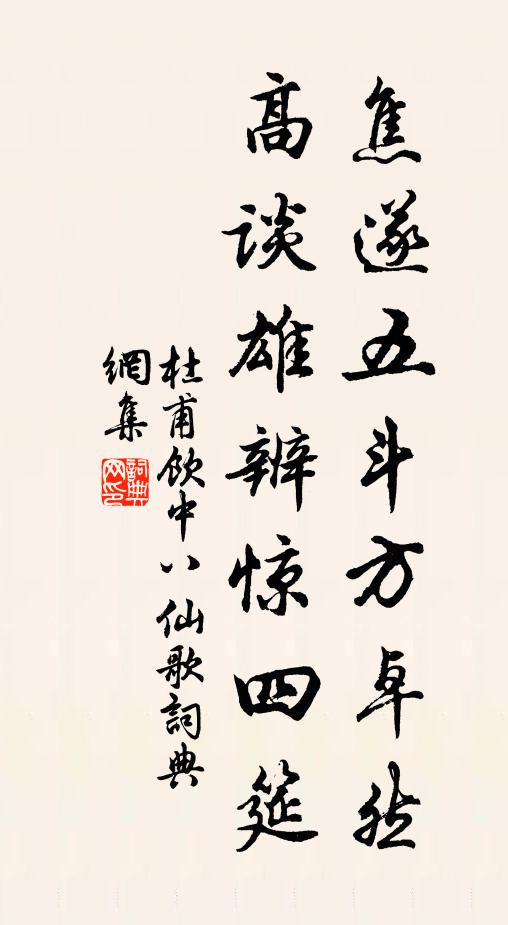 焦遂五斗方卓然
高谈雄辨惊四筵
杜甫飲中八仙歌詞典
網集
詞典网印